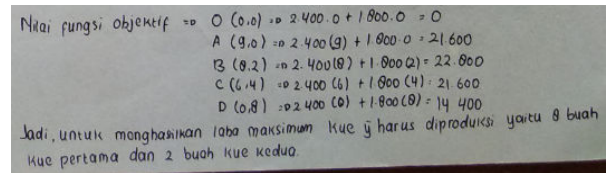 Nilai fungsi objektif => O (0,0) => 2.400.0 + 1.800.0 = 0
A (9,0) => 2.400(9) + 1.800.0 = 21.600
B (8.2) => 2.400(8) + 1.800(2) = 22.800
C (6,4) => 2.400 (6) + 1.800 (4) = 21.600
D (0,8) => 2.400 (0) + 1.800(8) = 14 400
Jadi, untuk menghasilkan laba maksimum kue yg harus diproduksi yaitu 8 buah
kue pertama dan 2 buah kue kedua.